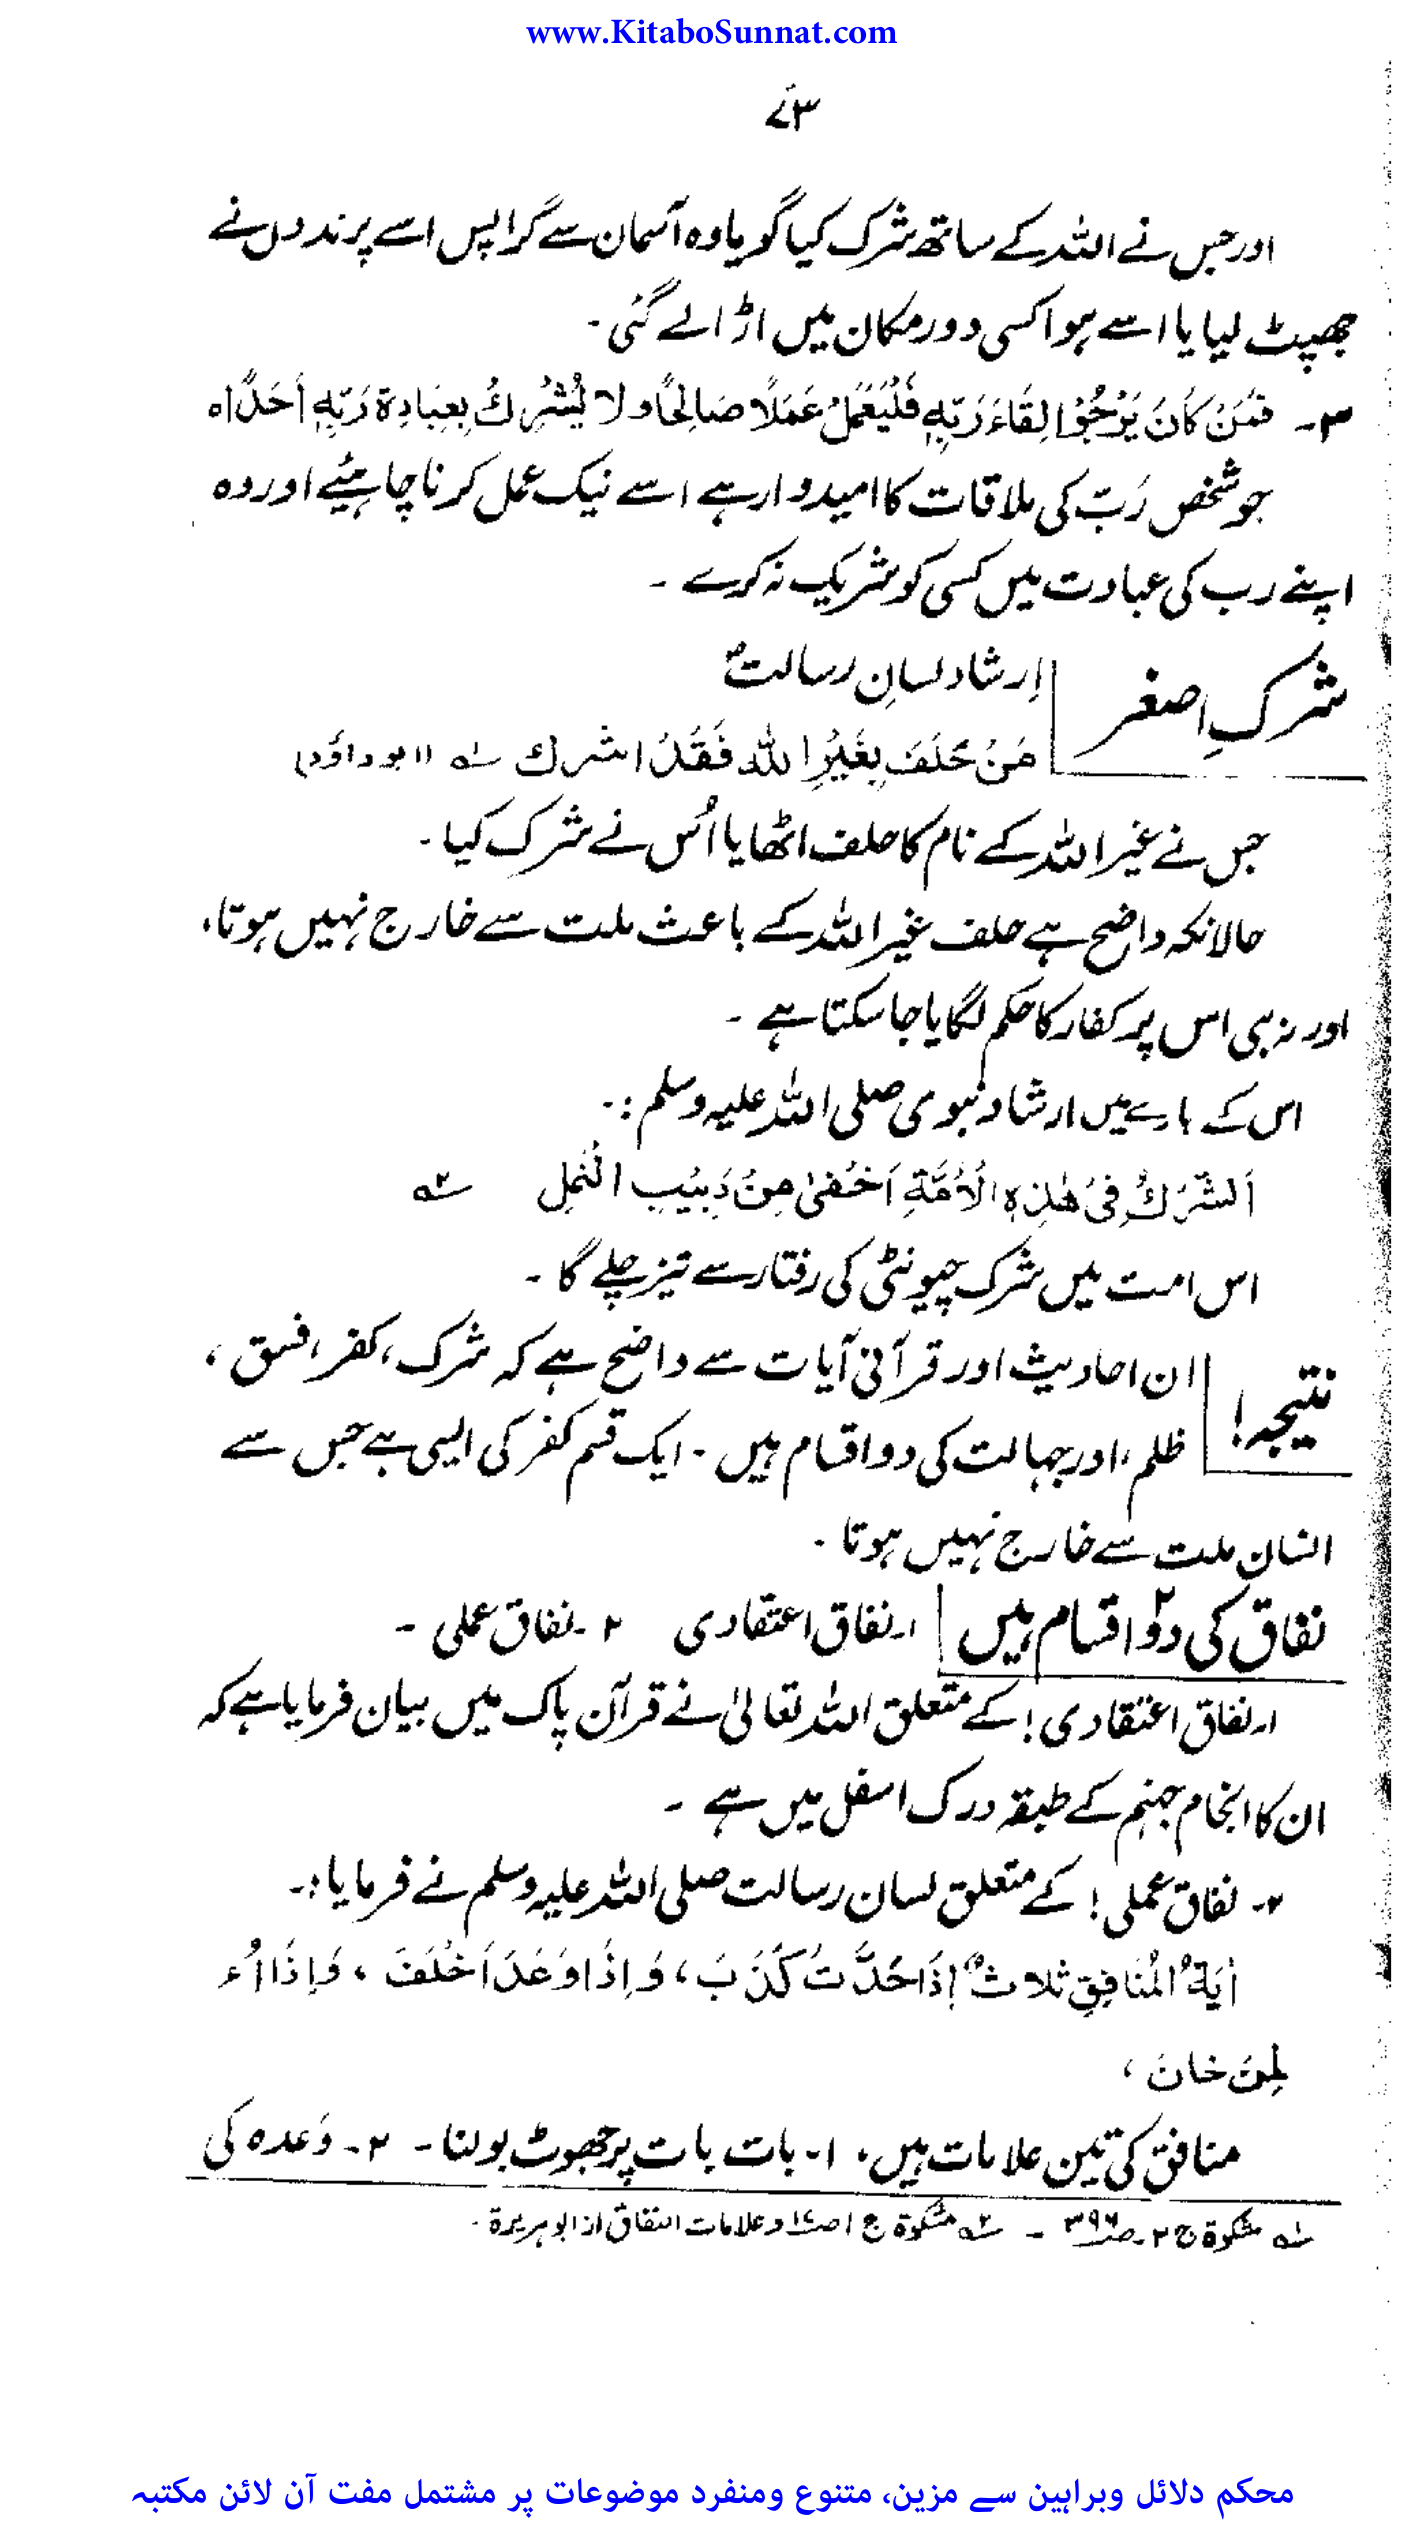 www.KitaboSunnat.com
۷۳
اور جس نے اللہ کے ساتھ شرک کیا گویا وہ آسمان سے گرا پس اسے پرندوں نے
جھپٹ لیا یا اسے ہوا کسی دور مکان میں اڑا لے گئی ۔
۳۔ فَمَنْ كَانَ يَرْجُوْا لِقَاءَ رَبِّهٖ فَلْيَعْمَلْ عَمَلًا صَالِحًا وَلا يُشْرِكْ بِعِبَادَةِ رَبِّهٖ أَحَدًا ہ
جو شخص رَبّ کی ملاقات کا امیدوار ہے اسے نیک عمل کرنا چاہیئے اور وہ
اپنے رب کی عبادت میں کسی کو شریک نہ کرے ۔
شرکِ اصغر
اِرشاد لسانِ رسالتؐ
مَنْ حَلَفَ بِغَيْرِ اللّٰهِ فَقَدْ اشرك ؎۱ (ابوداؤد)
جس نے غیر اللہ کے نام کا حلف اٹھایا اُس نے شرک کیا ۔
حالانکہ واضح ہے حلف غیر اللہ کے باعث ملت سے خارج نہیں ہوتا،
اور نہ ہی اس پر کفار کا حکم لگایا جا سکتا ہے ۔
اس کے بارے میں ارشاد نبوی صلی اللہ علیہ وسلم :۔
اَلشِّرْكُ فِیْ هٰذِهِ الْاُمَّةِ اَخْفیٰ مِنْ دَبِيْبِ النَّمْلِ ؎۲
اس امت میں شرک چیونٹی کی رفتار سے تیز چلے گا ۔
نتیجہ !
ان احادیث اور قرآنی آیات سے واضح ہے کہ شرک، کفر، فسق ،
ظلم، اور جہالت کی دو اقسام ہیں ۔ ایک قسم کفر کی ایسی ہے جس سے
انسان ملت سے خارج نہیں ہوتا ۔
نفاق کی دو۲ اقسام ہیں
۱۔ نفاق اعتقادی ۲۔ نفاق عملی ۔
۱۔ نفاق اعتقادی ! کے متعلق اللہ تعالیٰ نے قرآن پاک میں بیان فرمایا ہے کہ
ان کا انجام جہنم کے طبقہ درک اسفل میں ہے ۔
۲۔ نفاق عملی ! کے متعلق لسان رسالت صلی اللہ علیہ وسلم نے فرمایا :۔
اٰيَةُ الْمُنَافِقِ ثلاثٌ إِذَا حَدَّثَ كَذَبَ ، وَاِذَا وَعَدَ اَخْلَفَ ، وَاِذَا اُء
لمِنَ خانَ ،
منافق کی تین علامات ہیں، ۱۔ بات بات پر جھوٹ بولنا ۔ ۲۔ وَعدہ کی
؎۱ مشکوٰۃ ج ۲ صـ ۳۹۶ ۔ ؎۲ مشکوٰۃ ج ۱ صـ ۱۷ و علامات النفاق از ابوہریرۃ ۔
محکم دلائل وبراہین سے مزین، متنوع ومنفرد موضوعات پر مشتمل مفت آن لائن مکتبہ